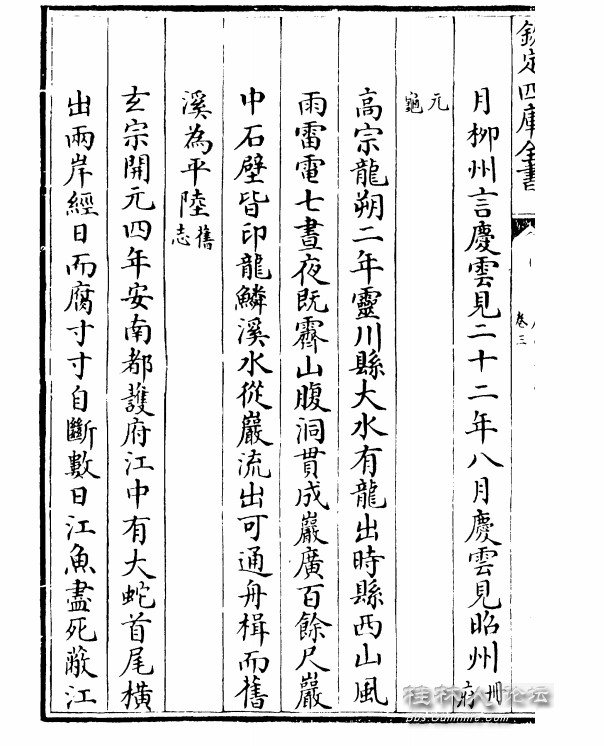 欽定四庫全書
卷三
月柳州言慶雲見二十二年八月慶雲見昭州冊府
元龜
高宗龍朔二年靈川縣大水有龍出時縣西山風
雨雷電七晝夜既霽山腹洞貫成巖廣百餘尺巖
中石壁皆印龍鱗溪水從巖流出可通舟楫而舊
溪為平陸舊志
玄宗開元四年安南都護府江中有大蛇首尾橫
出兩岸經日而腐寸寸自斷數日江魚盡死蔽江
桂林人论坛